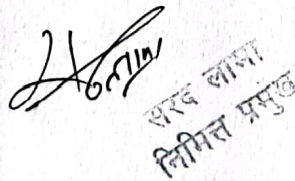 सरद लामा
निमित्त प्रमुख